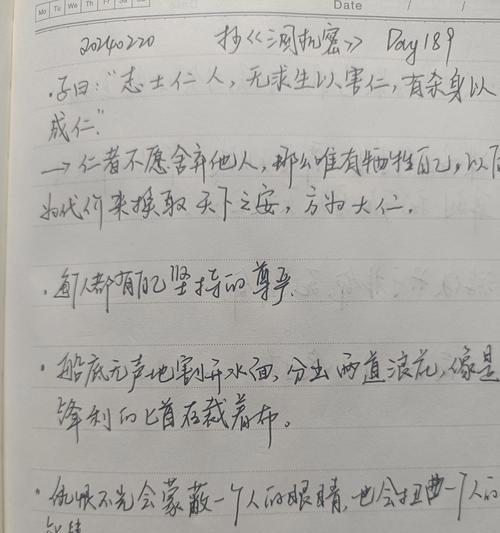 Mo Tu We Th Fr Sa Su
Date / /
20240220 抄《三国机密》 Day189
·子曰:"志士仁人,无求生以害仁,有杀身以
成仁."
→仁者不愿舍弃他人,那么唯有牺牲自己,以
为代价来换取天下之安,方为大仁.
·每人都有自己坚持的尊严.
·船底无声地割开水面,分出两道浪花,像是
锋利的匕首在裁着布。
·仇恨不光会蒙蔽一个人的眼睛,也会扭曲一个人的